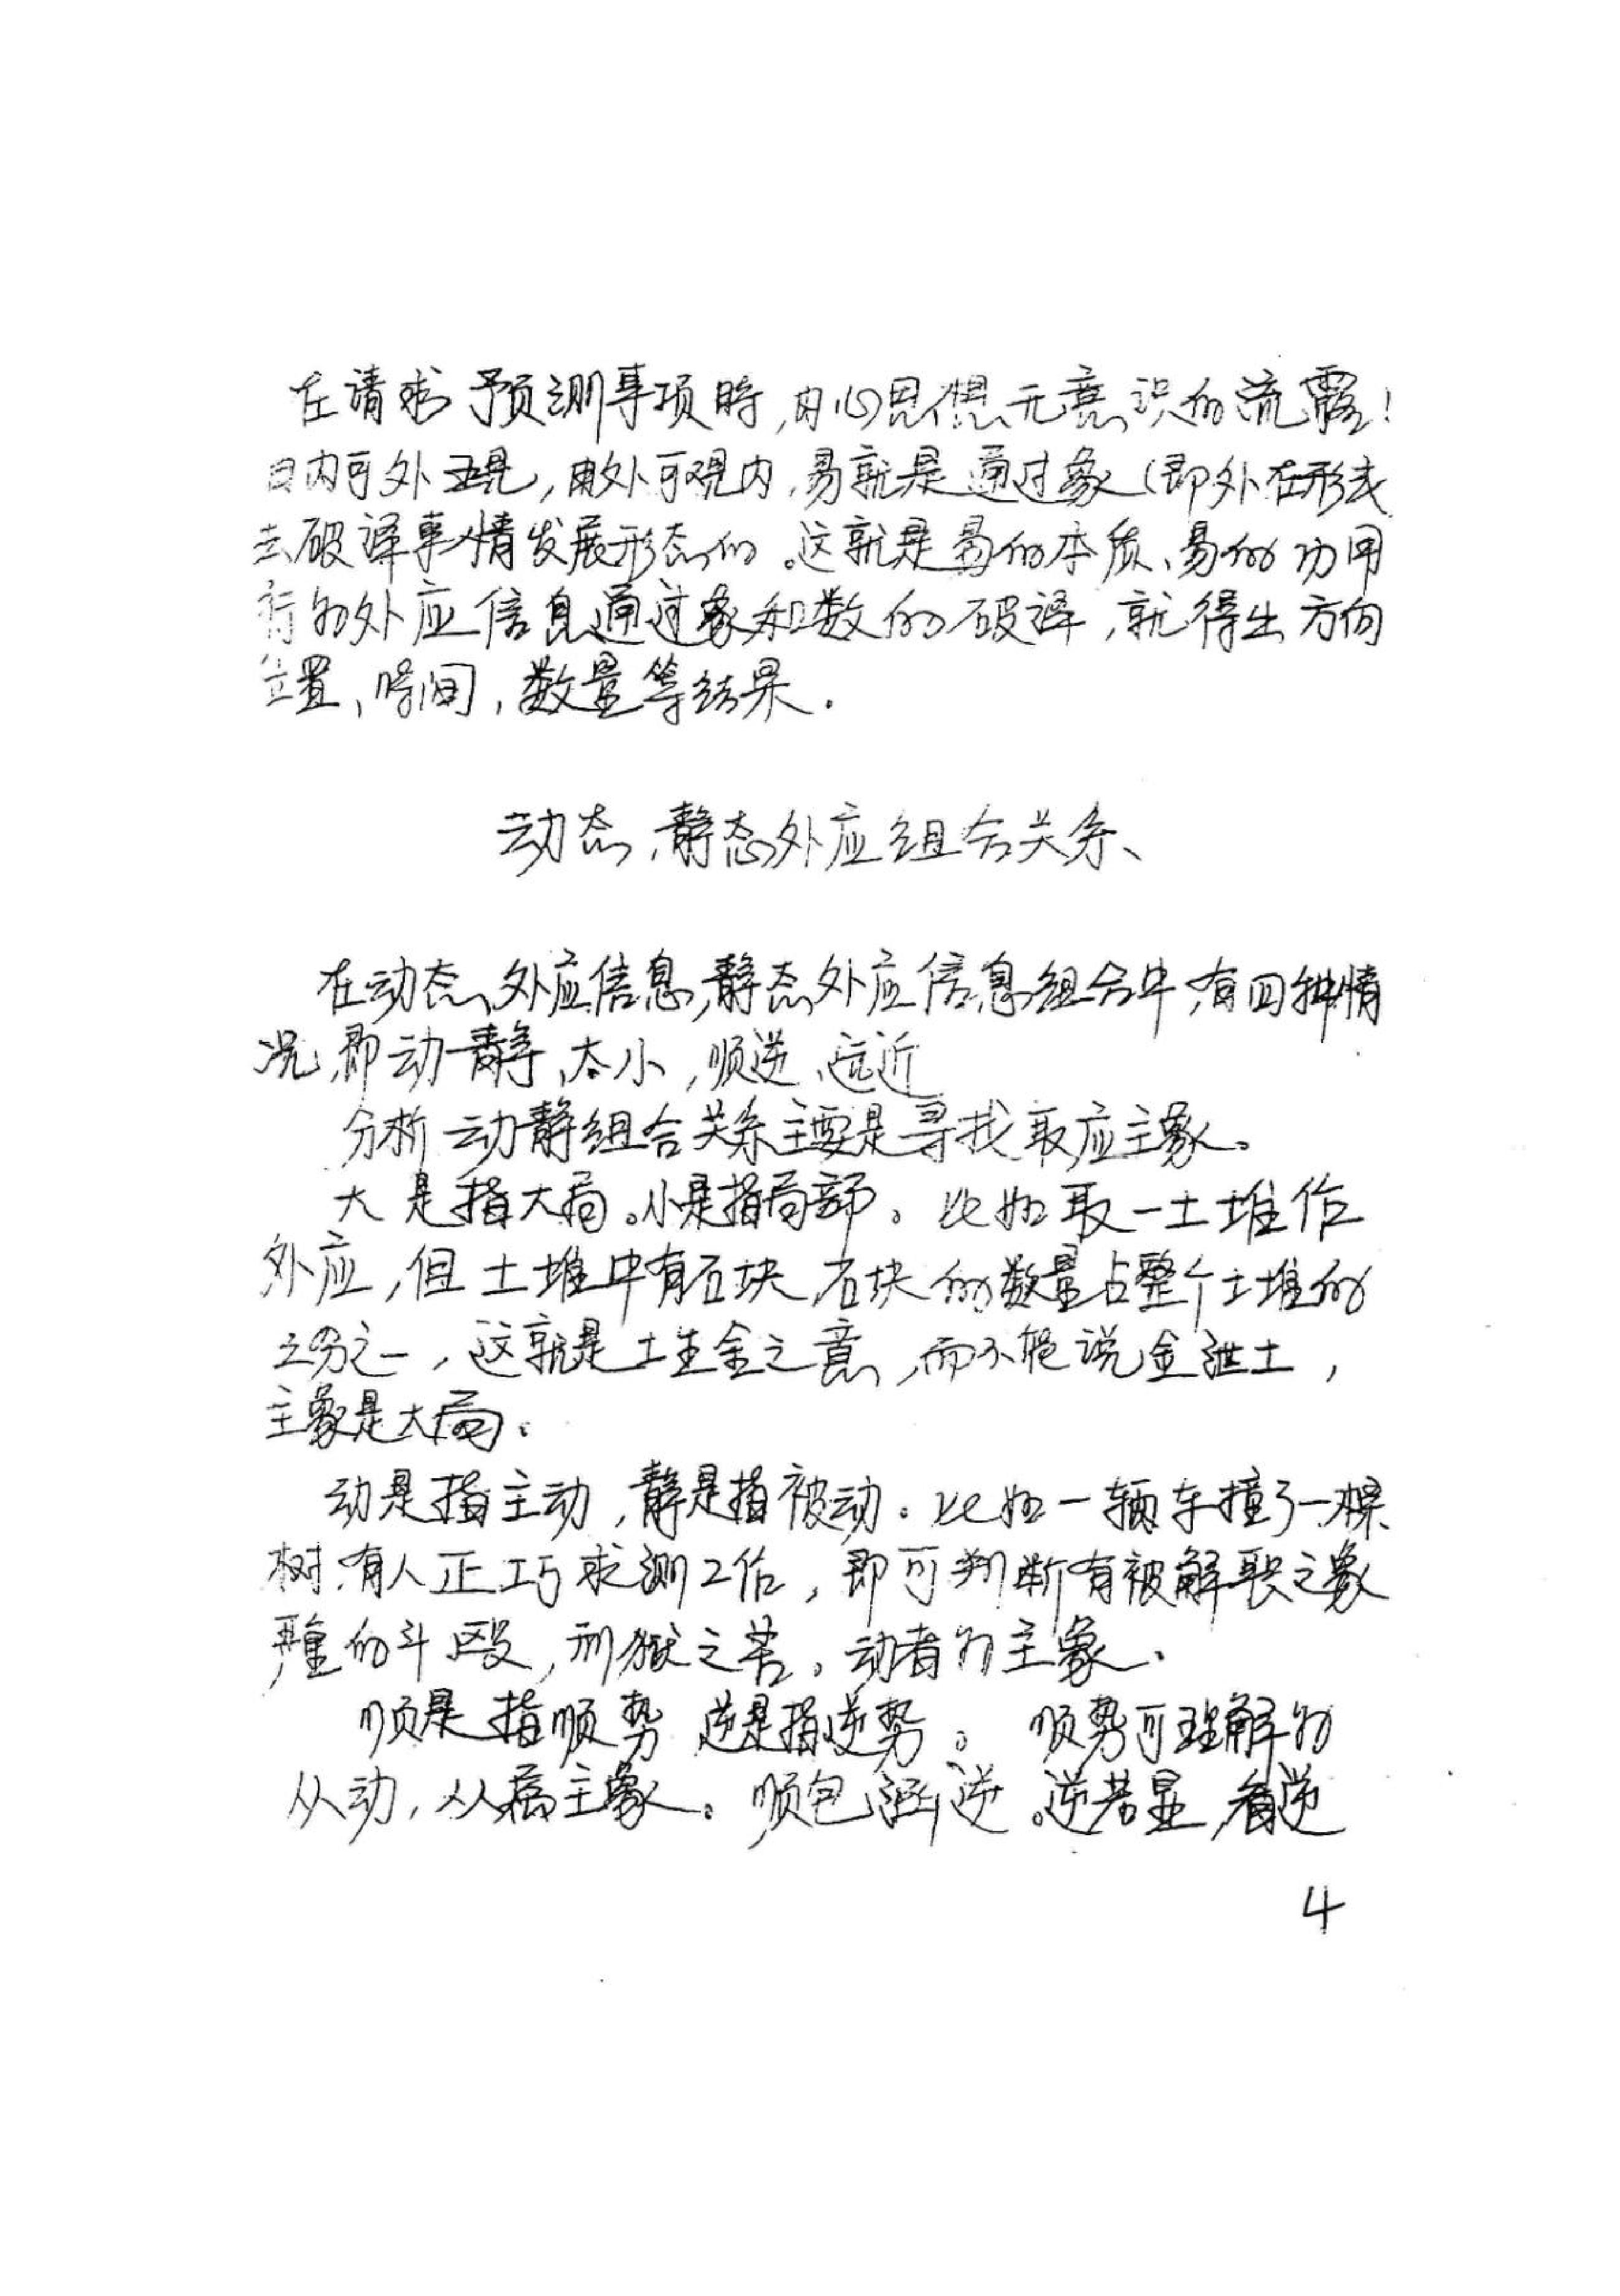 在请求预测事项时,内心思想无意识的流露!
由内可外现,由外可观内,易就是通过象(即外在形式
去破译事情发展形态的。这就是易的本质、易的功用
行的外应信息通过象和数的破译,就得出方向
位置、时间,数量等结果.
动态、静态外应组合关系、
在动态外应信息,静态外应信息组合中,有四种情
况,即动静、大小,顺逆、远近
分析动静组合关系主要是寻找取应主象。
大是指大局。小是指局部。比如取一土堆作
外应,但土堆中有石块,石块的数量占整个土堆的
分之一,这就是土生金之意,而不能说金泄土,
主象是大局.
动是指主动,静是指被动.比如一辆车撞了一棵
树.有人正巧求测工作,即可判断有被解职之象
严重的斗殴,刑狱之苦。动者为主象.
顺是指顺势 逆是指逆势。顺势可理解为
从动,从属主象。顺包涵逆.逆若显,看逆
4